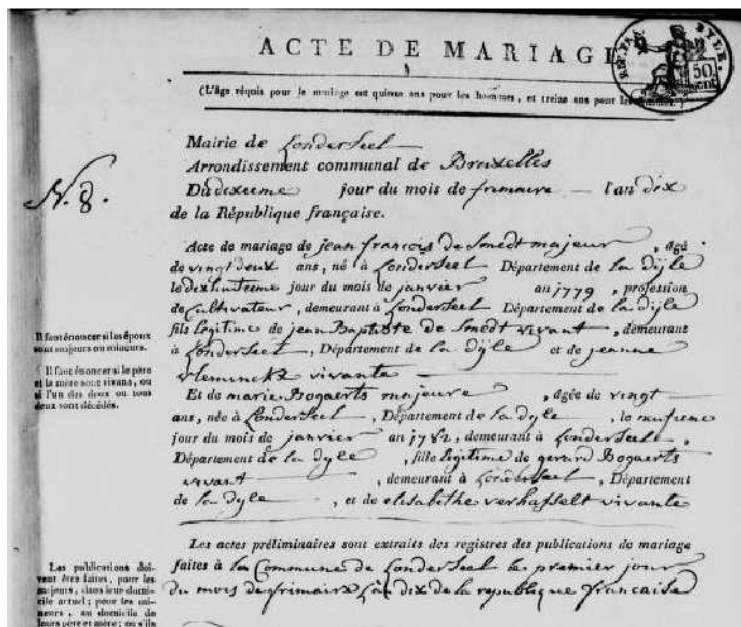 ACTE DE MARIAGE
(L'âge réquis pour le mariage est quinze ans pour les hommes, et treize ans pour les femmes.)
DYLE.
50
CENT
N. 8.
Mairie de Londerseel
Arrondissement communal de Bruxelles
Du dixieme jour du mois de frimaire l'an dix
de la République française.
Acte de mariage de jean françois de Smedt majeur , agé
de vingt deux ans, né à Londerseel Département de la dÿle
le dix huitieme jour du mois de janvier an 1779 , profession
de Cultivateur, demeurant à Londerseel Département de la dÿle
fils légitime de jean Baptiste de Smedt vivant , demeurant
à Londerseel , Département de la dÿle et de jeanne
Vleminckx vivante
Et de marie Bogaerts majeure , agée de vingt
ans, née à Londerseel , Département de la dyle , le neufieme
jour du mois de janvier an 1782, demeurant à Londerseel ,
Département de la dyle , fille légitime de gerard Bogaerts
vivant , demeurant à Londerseel , Département
de la dyle , et de elisabethe verhasselt vivante
Les actes préliminaires sont extraits des registres des publications de mariage
faites à la Commune de Londerseel le premier jour
du mois de frimaire L'an dix de la republique francaise
Il faut énoncer si les époux
sont majeurs ou mineurs.
Il faut énoncer si le père
et la mère sont vivans, ou
si l'un des deux ou tous
deux sont décédés.
Les publications doi-
vent être faites, pour les
majeurs, dans leur domi-
cile actuel; pour les mi-
neurs, au domicile de
leurs père et mère; ou s'ils